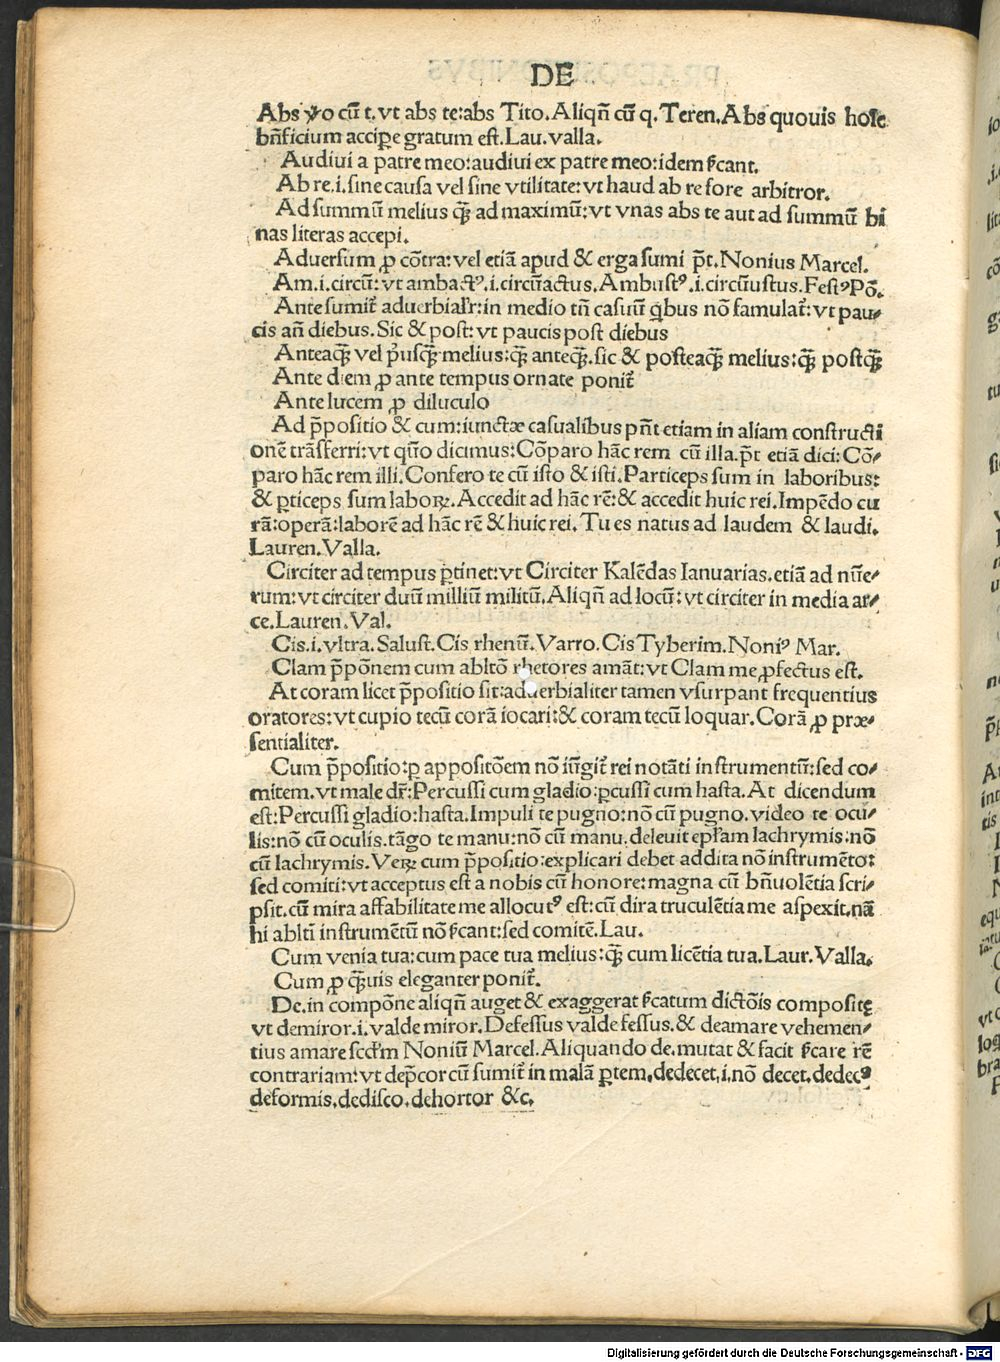 DE
Abs v̄o cū t. vt abs te: abs Tito. Aliqñ cū q. Teren. Abs quouis hoīe
bñficium accipe gratum est. Lau. valla.
Audiui a patre meo: audiui ex patre meo: idem s̄cant.
Ab re .i. sine causa vel sine vtilitate: vt haud ab re fore arbitror.
Ad summū melius q̄ȝ ad maximū: vt vnas abs te aut ad summū bi
nas literas accepi.
Aduersum ꝓ cōtra: vel etiā apud & erga sumi p̄t. Nonius Marcel.
Am .i. circū: vt ambactꝰ .i. circūactus. Ambustꝰ .i. circūustus. Festꝰ Pō.
Ante sumit᷑ aduerbialr̄: in medio tñ casuū q̄bus nō famulat᷑: vt pau⸗
cis añ diebus. Sic & post: vt paucis post diebus
Anteaq̄ȝ vel p̄usq̄ȝ melius: q̄ȝ anteq̄ȝ. sic & posteaq̄ȝ melius: q̄ȝ postq̄ȝ
Ante diem ꝓ ante tempus ornate ponit᷑
Ante lucem ꝓ diluculo
Ad p̄positio & cum: iunctæ casualibus pñt etiam in aliam constructi
onē trāsferri: vt qn̄o dicimus: Cōparo hāc rem cū illa. p̄t etiā dici: Cō⸗
paro hāc rem illi. Confero te cū isto & isti. Particeps sum in laboribus:
& ꝑticeps sum laboꝝ. Accedit ad hāc rē: & accedit huic rei. Impēdo cu
rā: operā: laborē ad hāc rē & huic rei. Tu es natus ad laudem & laudi.
Lauren. Valla.
Circiter ad tempus ꝑtinet: vt Circiter Kalēdas Ianuarias. etiā ad nūe⸗
rum: vt circiter duū milliū militū. Aliqñ ad locū: vt circiter in media ar⸗
ce. Lauren. Val.
Cis .i. vltra. Salust. Cis rhenū. Varro. Cis Tyberim. Noniꝰ Mar.
Clam p̄pōnem cum abltō rhetores amāt: vt Clam me ꝓfectus est.
At coram licet p̄positio sit: aduerbialiter tamen vsurpant frequentius
oratores: vt cupio tecū corā iocari: & coram tecū loquar. Corā ꝓ præ⸗
sentialiter.
Cum p̄positio: ꝑ appositōem nō iūgit᷑ rei notāti instrumentū: sed co⸗
mitem. vt male dr̄: Percussi cum gladio: ꝑcussi cum hasta. At dicendum
est: Percussi gladio: hasta. Impuli te pugno: nō cū pugno. video te ocu⸗
lis: nō cū oculis. tāgo te manu: nō cū manu. deleuit epl̄am lachrymis: nō
cū lachrymis. Veꝝ cum p̄positio: explicari debet addita nō instrumēto:
sed comiti: vt acceptus est a nobis cū honore: magna cū bñuolētia scri⸗
psit. cū mira affabilitate me allocutꝰ est: cū dira truculētia me aspexit. nā
hi abltī instrumētū nō s̄cant: sed comitē. Lau.
Cum venia tua: cum pace tua melius: q̄ȝ cum licētia tua. Laur. Valla.
Cum ꝓ q̄ȝuis eleganter ponit᷑.
De. in compōne aliqñ auget & exaggerat s̄catum dictōis compositę
vt demiror .i. valde miror. Defessus valde fessus. & deamare vehemen⸗
tius amare scd̄m Noniū Marcel. Aliquando de. mutat & facit s̄care rē
contrariam: vt dep̄cor cū sumit᷑ in malā ꝑtem. dedecet .i. nō decet. dedecꝰ
deformis. dedisco. dehortor &c.
Digitalisierung gefördert durch die Deutsche Forschungsgemeinschaft - DFG